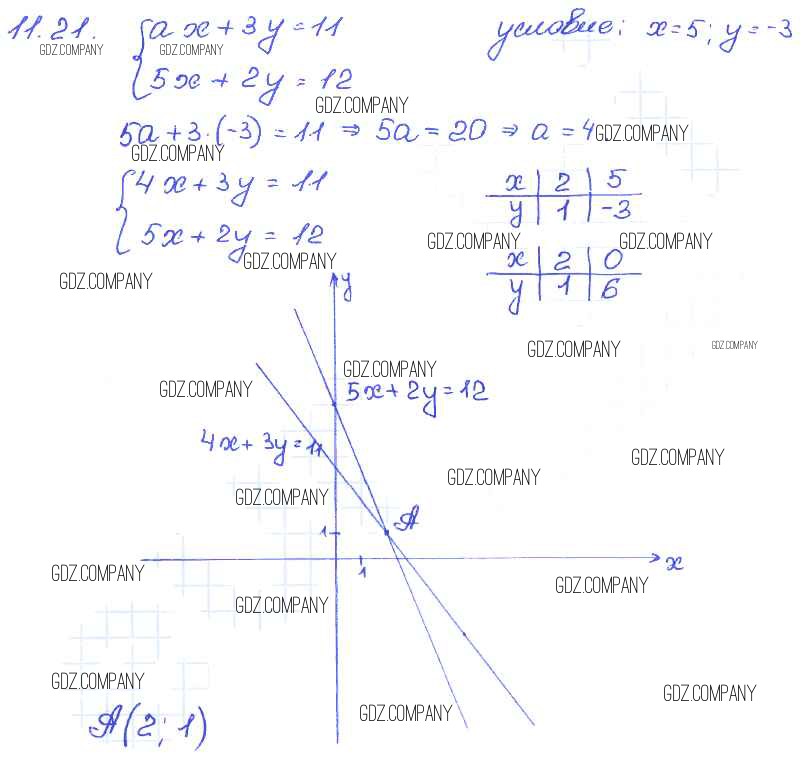 11.21. { ax + 3y = 11 условие: x = 5; y = -3
GDZ.COMPANY GDZ.COMPANY
5x + 2y = 12
GDZ.COMPANY
5a + 3·(-3) = 11 ⇒ 5a = 20 ⇒ a = 4 GDZ.COMPANY
GDZ.COMPANY
{ 4x + 3y = 11 x | 2 | 5
y | 1 | -3
5x + 2y = 12 GDZ.COMPANY GDZ.COMPANY
GDZ.COMPANY x | 2 | 0
GDZ.COMPANY y | 1 | 6
y
GDZ.COMPANY GDZ.COMPANY
GDZ.COMPANY
GDZ.COMPANY 5x + 2y = 12
4x + 3y = 11
GDZ.COMPANY
GDZ.COMPANY
GDZ.COMPANY
A
1
x
1
GDZ.COMPANY GDZ.COMPANY
GDZ.COMPANY
GDZ.COMPANY GDZ.COMPANY
GDZ.COMPANY
A(2; 1)